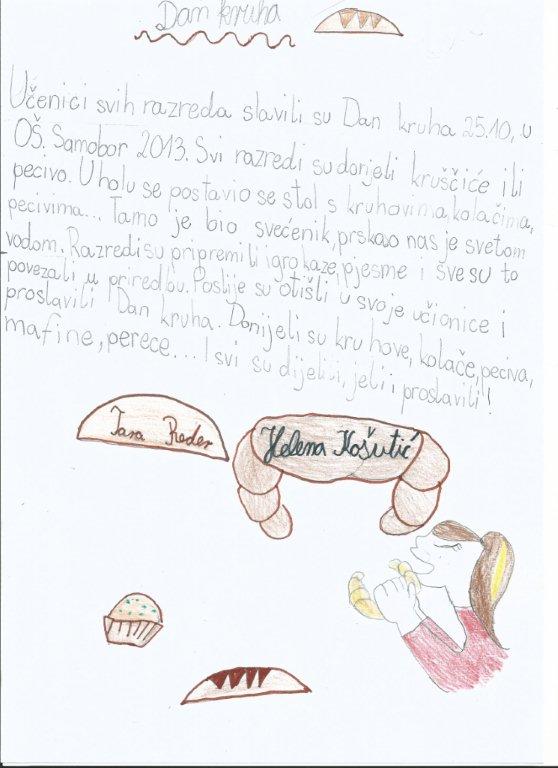 Dan kruha
Učenici svih razreda slavili su Dan kruha 25.10, u
OŠ. Samobor 2013. Svi razredi su donjeli kruščiće ili
pecivo. U holu se postavio se stol s kruhovima, kolačima,
pecivima... Tamo je bio svećenik, prskao nas je svetom
vodom. Razredi su pripremili igrokaze, pjesme i sve su to
povezali u priredbu. Poslije su otišli u svoje učionice i
proslavili Dan kruha. Donijeli su kruhove, kolače, peciva,
mafine, perece... I svi su dijelili, jeli i proslavili!
Tara Reder
Helena Košutić